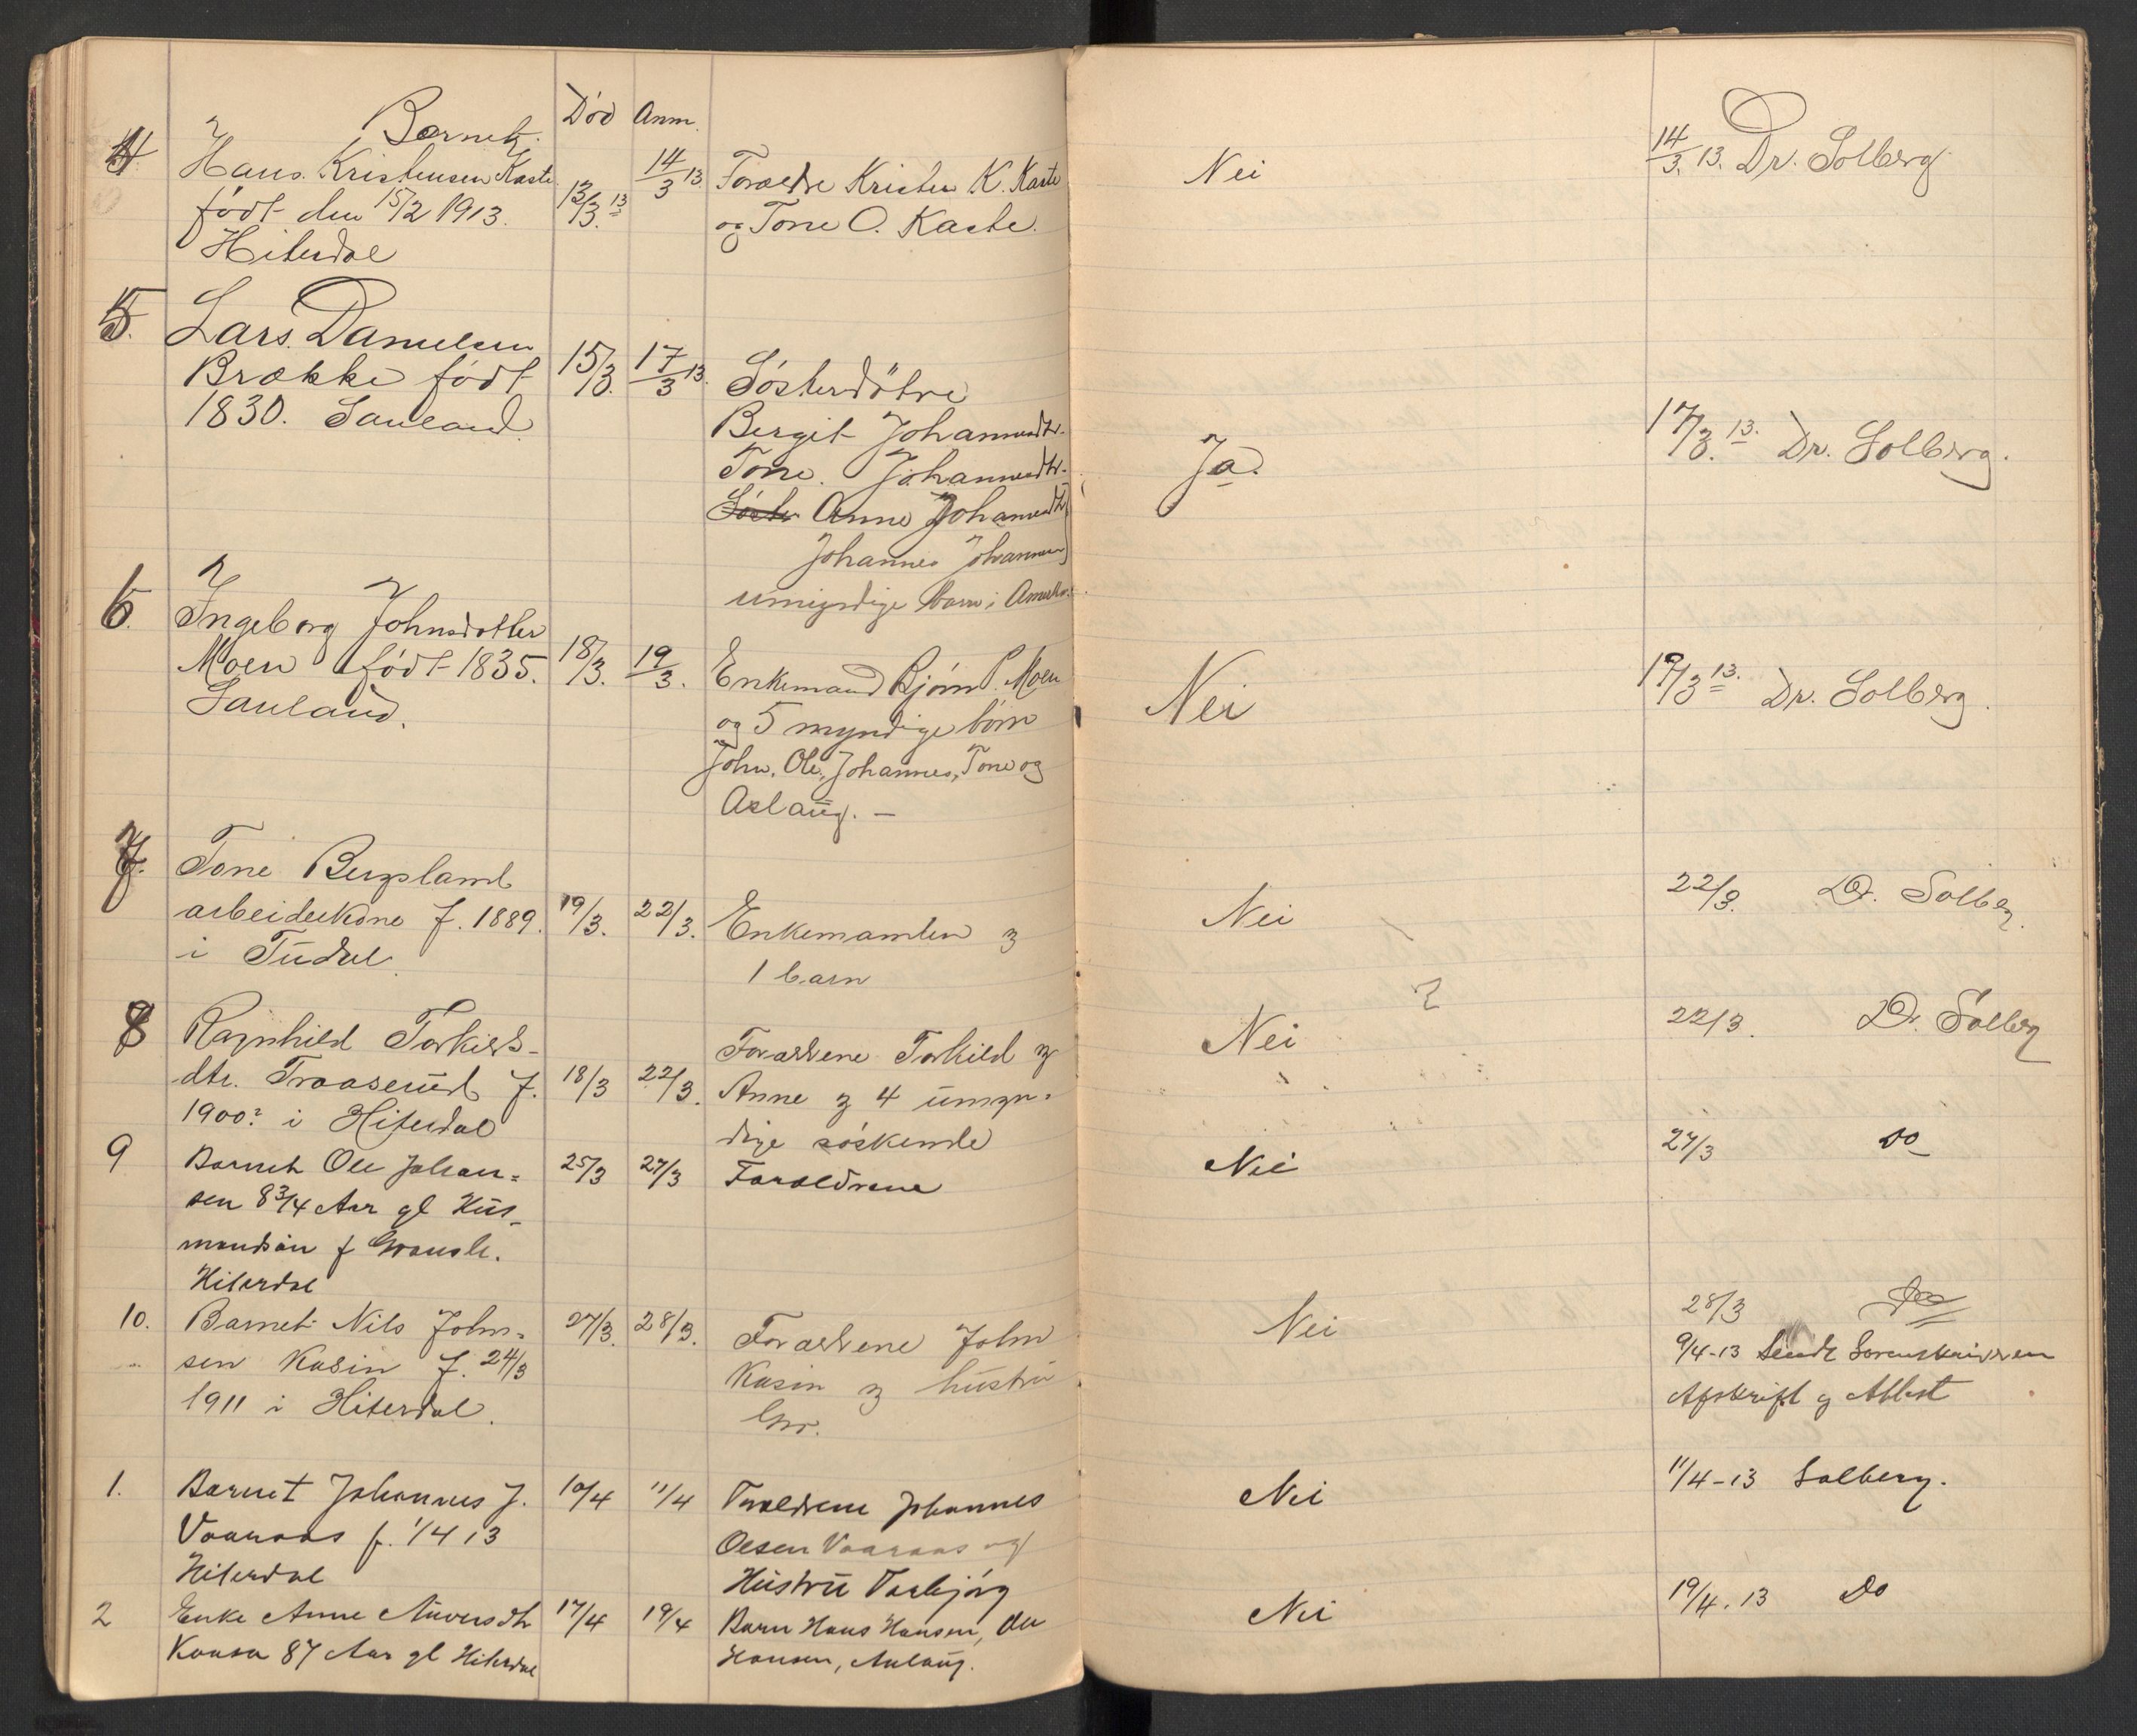 Død Anm.
4 Barnet
Hans Kristensen Kaste 13/3 13 14/3 13. Forældre Kristen K. Kaste Nei 14/3. 13. Dr. Solberg
født den 15/2 1913. og Tone O. Kaste.
Hiterdal
5. Lars Danielsen
Brække født 15/3. 17/3 13. Søsterdøtre
1830. Sauland. Bergit Johannesdtr. 17/3. 13. Dr. Solberg.
Tone. Johannesdtr. Ja.
Søster Anne Johannesdtr
Johannes Johannesen
umyndige barn i Amerka.
6. Ingeborg Johnsdotter
Moen født 1835. 18/3. 19/3. Enkemand Bjørn P. Moen Nei 19/3 13. Dr. Solberg.
Sauland. og 5 myndige børn
John, Ole, Johannes, Tone og
Aslaug. —
7. Tone Bergsland
arbeiderkone f. 1889. 19/3. 22/3. Enkemanden og Nei 22/3. Dr. Solberg.
i Tudal. 1 barn
8 Ragnhild Torkilds-
dtr. Traaserud f. 18/3 22/3. Forældrene Torkild og Nei 22/3. Dr. Solberg
1900? i Hiterdal Anne og 4 umyn-
dige søskende
9 Barnet Ole Johan- 25/3 27/3 Forældrene Nei 27/3 Do
sen 8 3/4 Aar gl Hus-
mandsøn f
Hiterdal
10. Barnet Nils John- 27/3. 28/3. Forældrene John Nei 28/3 Do
sen Kasin f. 24/3 Kasin og hustru 9/4-13 Sendt Sorenskriveren
1911 i Hiterdal. Gro. Afskrift og Attest
1. Barnet Johannes J. 10/4 11/4 Forældrene Johannes Nei 11/4-13 Solberg.
Vaaraas f. 1/4 13 Olsen Vaaraas og
Hiterdal Hustru Torbjørg
2 Enke Anne Halvorsdtr 17/4 19/4 Barn Hans Hansen, Ole Nei 19/4. 13 Do
87 Aar gl Hiterdal Hansen, Aslaug.